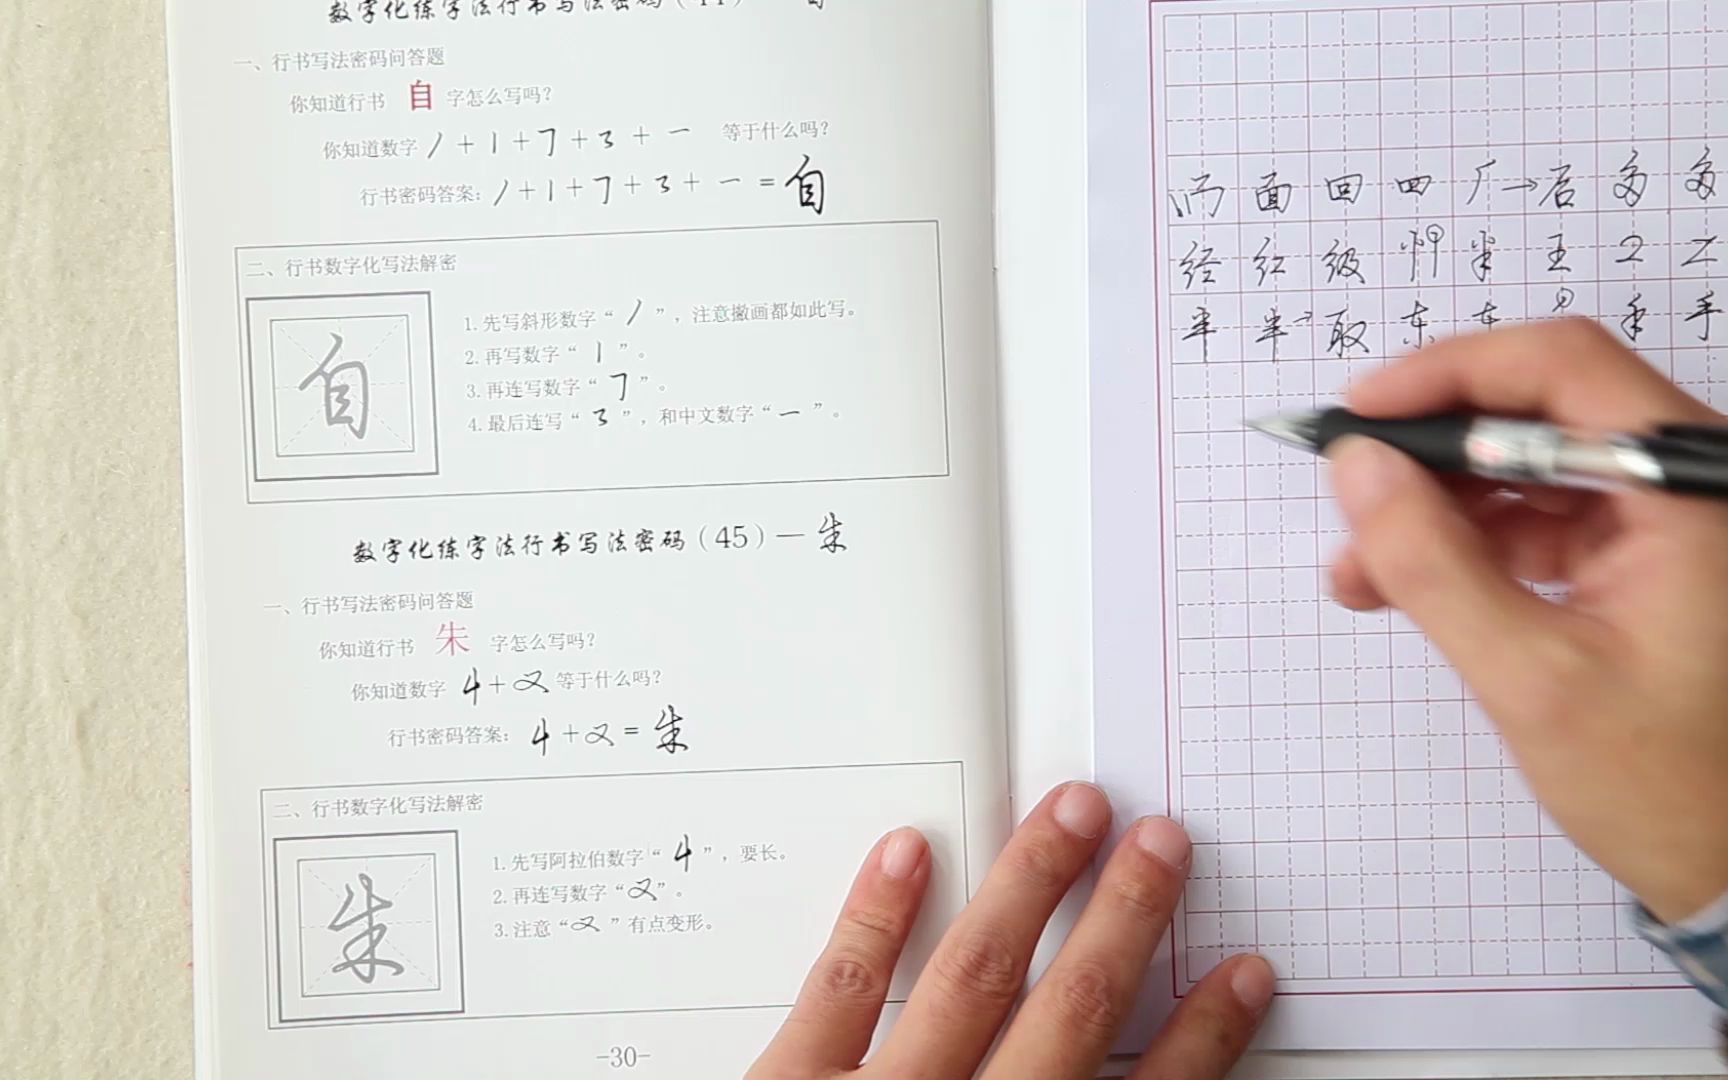 数字化练字法行书写法密码(44)一自
一、行书写法密码问答题
你知道行书 自 字怎么写吗?
你知道数字 / + 1 + 7 + 3 + 一 等于什么吗?
行书密码答案: / + 1 + 7 + 3 + 一 = 自
二、行书数字化写法解密
自
1.先写斜形数字“ / ”,注意撇画都如此写。
2.再写数字“ 1 ”。
3.再连写数字“ 7 ”。
4.最后连写“ 3 ”,和中文数字“ 一 ”。
数字化练字法行书写法密码(45)一朱
一、行书写法密码问答题
你知道行书 朱 字怎么写吗?
你知道数字 4 + 又 等于什么吗?
行书密码答案: 4 + 又 = 朱
二、行书数字化写法解密
朱
1.先写阿拉伯数字“ 4 ”,要长。
2.再连写数字“又”。
3.注意“又”有点变形。
-30-
而 面 回 四 厂→后 多 多
经 红 级 半 王 2 Z
半 半→ 取 东 东 手 手